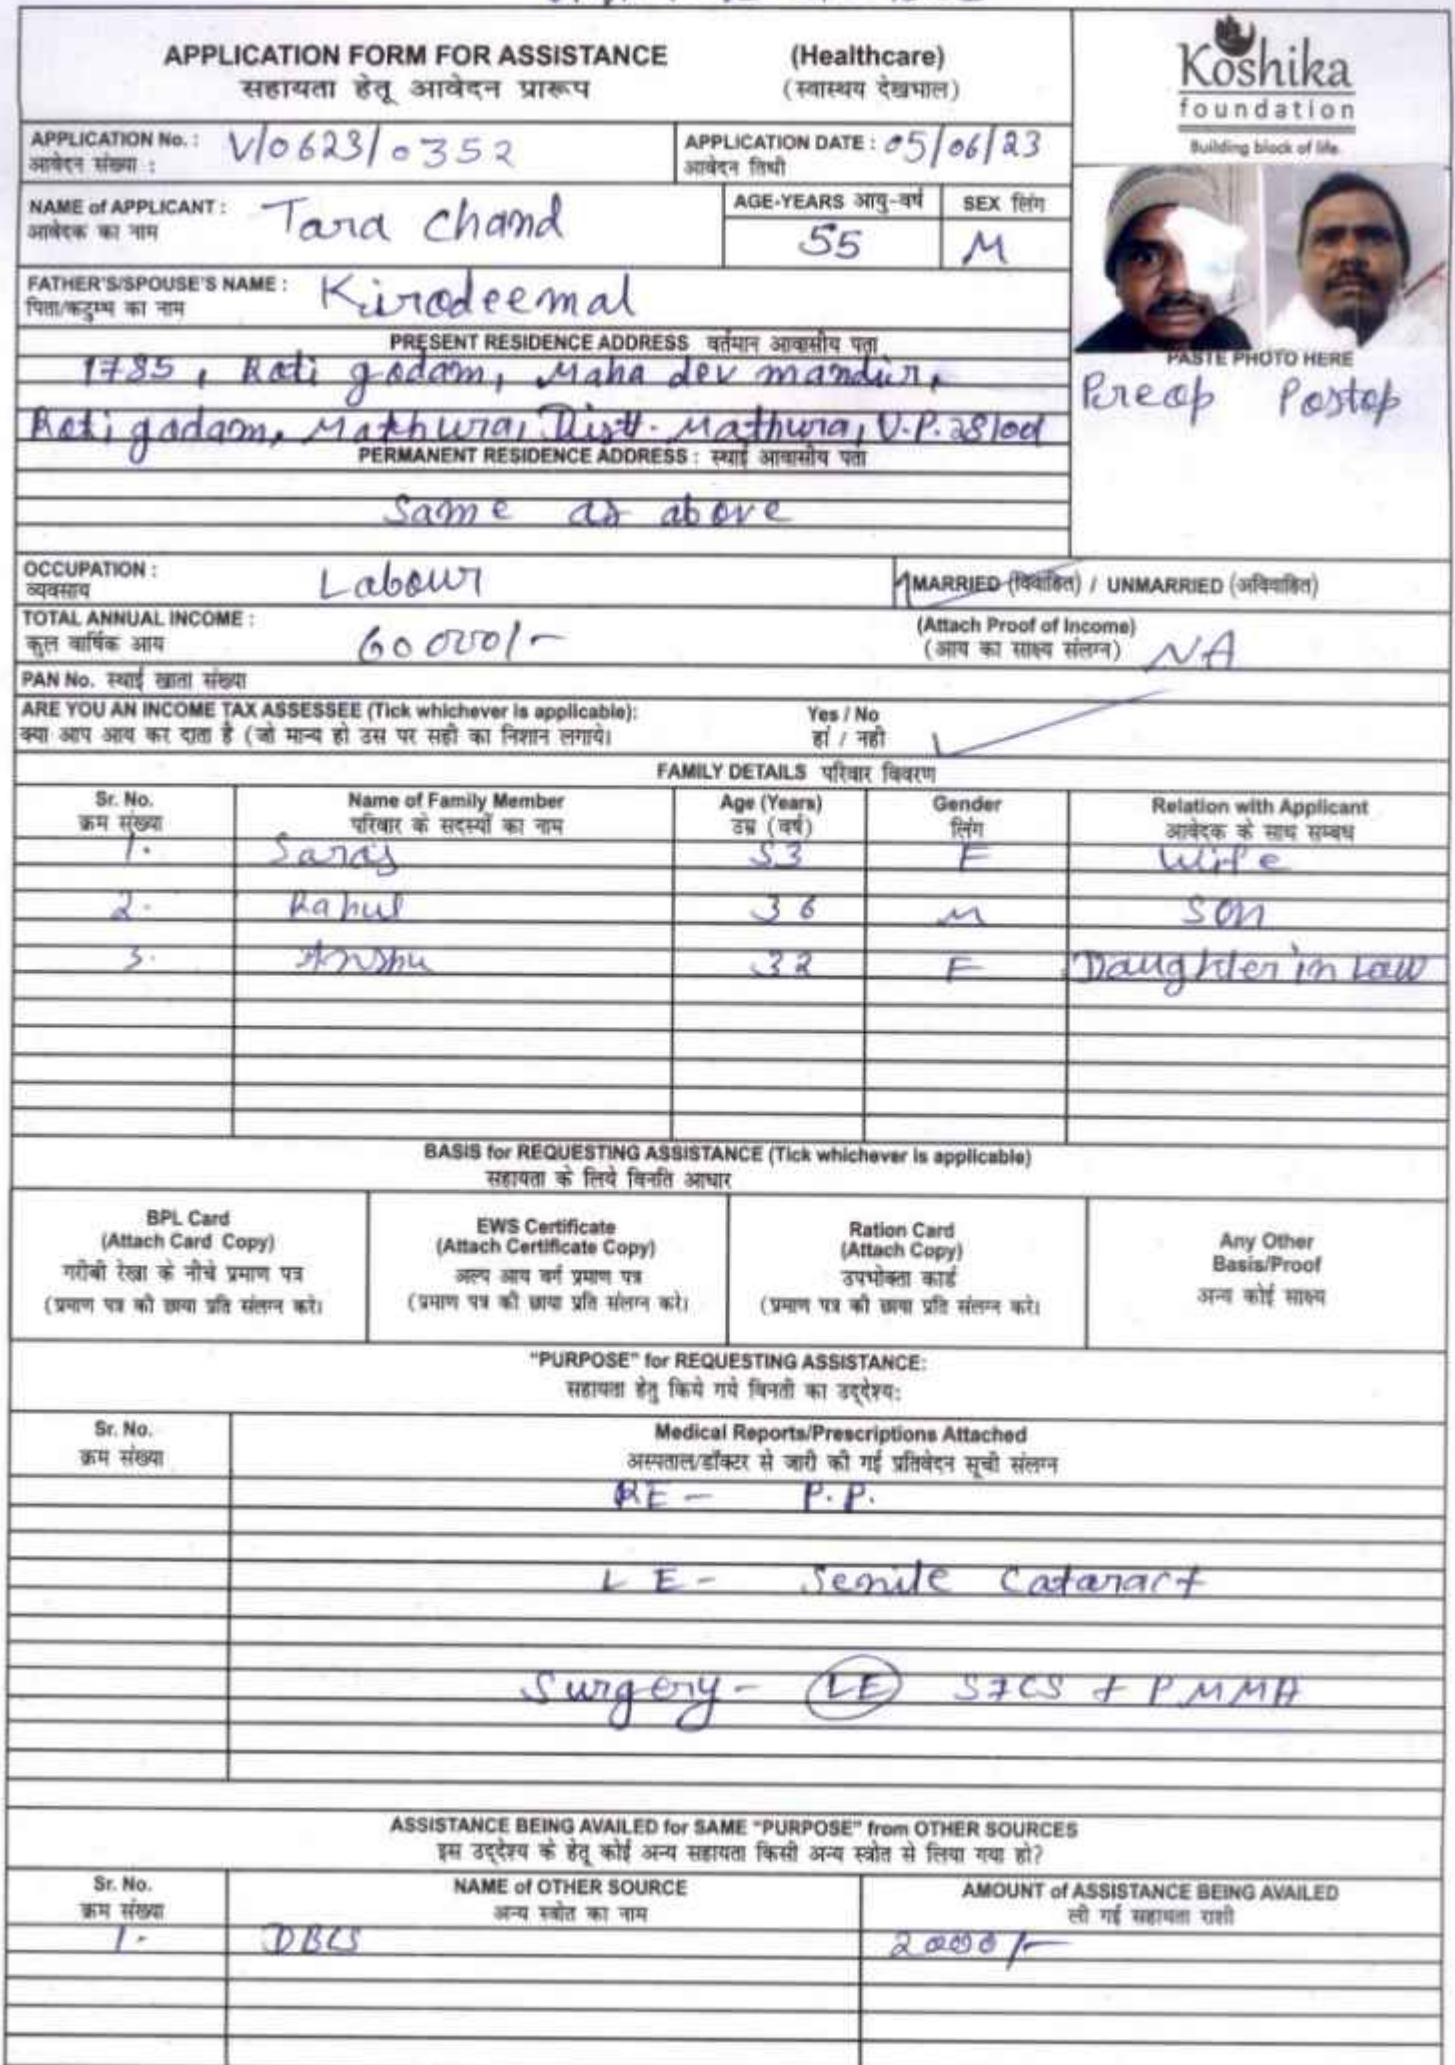 APPLICATION FORM FOR ASSISTANCE (Healthcare)
सहायता हेतू आवेदन प्रारूप (स्वास्थय देखभाल)
Koshika
foundation
Building block of life
APPLICATION No. : V/0623/0352 APPLICATION DATE : 05/06/23
आवेदन संख्या : आवेदन तिथी
NAME of APPLICANT : Tara Chand AGE-YEARS आयु-वर्ष SEX लिंग
आवेदक का नाम 55 M
FATHER'S/SPOUSE'S NAME : Kirodeemal
पिता/कटुम्ब का नाम
PRESENT RESIDENCE ADDRESS वर्तमान आवासीय पता
1785, Roti godam, Maha dev mandir,
Roti godam, Mathura, Distt. Mathura, U.P.
PERMANENT RESIDENCE ADDRESS : स्थाई आवासीय पता
Same as above
PASTE PHOTO HERE
Preop Postop
OCCUPATION : Labour MARRIED (विवाहित) / UNMARRIED (अविवाहित)
व्यवसाय
TOTAL ANNUAL INCOME : 60000/- (Attach Proof of Income)
कुल वार्षिक आय (आय का साक्ष्य संलग्न) NA
PAN No. स्थाई खाता संख्या
ARE YOU AN INCOME TAX ASSESSEE (Tick whichever is applicable): Yes / No
क्या आप आय कर दाता है (जो मान्य हो उस पर सही का निशान लगाये। हां / नही
FAMILY DETAILS परिवार विवरण
Sr. No. Name of Family Member Age (Years) Gender Relation with Applicant
क्रम संख्या परिवार के सदस्यों का नाम उम्र (वर्ष) लिंग आवेदक के साथ सम्बध
1. Saroj 53 F Wife
2. Rahul 36 M Son
3. Anshu 32 F Daughter in Law
BASIS for REQUESTING ASSISTANCE (Tick whichever is applicable)
सहायता के लिये विनति आधार
BPL Card
(Attach Card Copy)
गरीबी रेखा के नीचे प्रमाण पत्र
(प्रमाण पत्र की छाया प्रति संलग्न करे।
EWS Certificate
(Attach Certificate Copy)
अल्प आय वर्ग प्रमाण पत्र
(प्रमाण पत्र की छाया प्रति संलग्न करे।
Ration Card
(Attach Copy)
उपभोक्ता कार्ड
(प्रमाण पत्र की छाया प्रति संलग्न करे।
Any Other
Basis/Proof
अन्य कोई साक्ष्य
"PURPOSE" for REQUESTING ASSISTANCE:
सहायता हेतु किये गये विनती का उद्देश्य:
Sr. No. Medical Reports/Prescriptions Attached
क्रम संख्या अस्पताल/डॉक्टर से जारी की गई प्रतिवेदन सूची संलग्न
RE - P.P.
LE - Senile Cataract
Surgery - LE SICS + PMMA
ASSISTANCE BEING AVAILED for SAME "PURPOSE" from OTHER SOURCES
इस उद्देश्य के हेतू कोई अन्य सहायता किसी अन्य स्त्रोत से लिया गया हो?
Sr. No. NAME of OTHER SOURCE AMOUNT of ASSISTANCE BEING AVAILED
क्रम संख्या अन्य स्त्रोत का नाम ली गई सहायता राशी
1. DBCS 2000/-